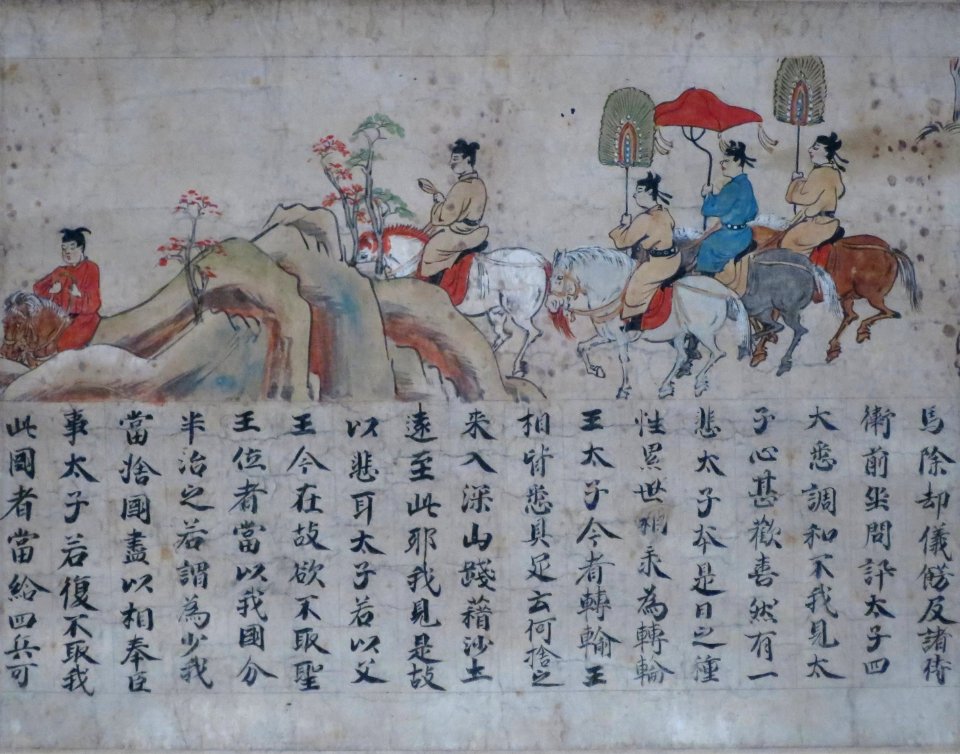 馬除却儀餝反諸侍
衛前坐問訊太子四
大悉調和不我見太
子心甚歡喜然有一
悲太子夲是日之種
性累世相承為轉輪
王太子今者轉輪王
相皆悉具足云何捨之
来入深山踐藉沙土
遠至此耶我見是故
以悲耳太子若以父
王今在故欲不取聖
王位者當以我國分
半治之若謂為少我
當捨國盡以相奉臣
事太子若復不取我
此國者當給四兵可